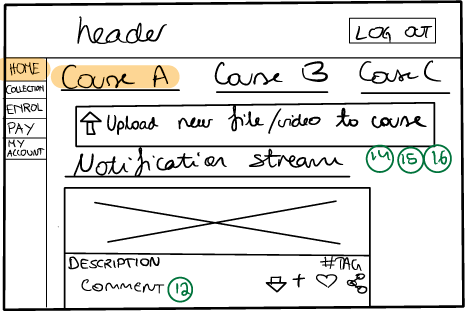 header
LOG OUT
HOME
COLLECTION
ENROL
PAY
MY
ACCOUNT
Course A Course B Course C
Upload new file/video to course
Notification stream 14 15 16
DESCRIPTION #TAG
COMMENT 12 +